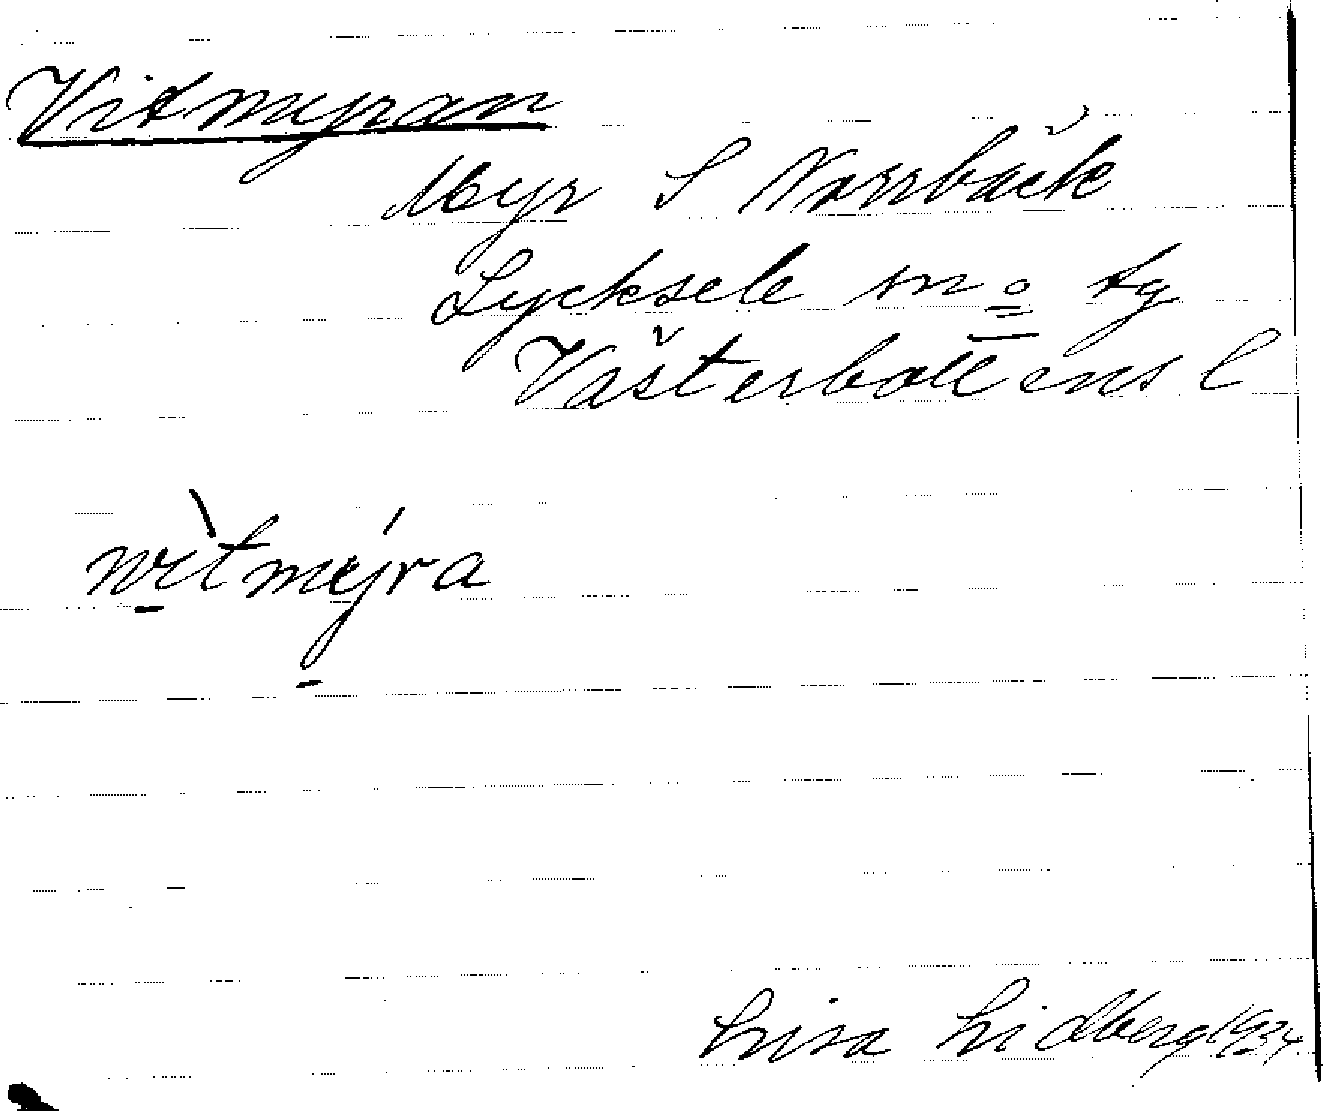 Vitmyran
Myr S Norrbäck
Lycksele sn o tg
Västerbottens l
wìtmýra
Lisa Lidberg 1934